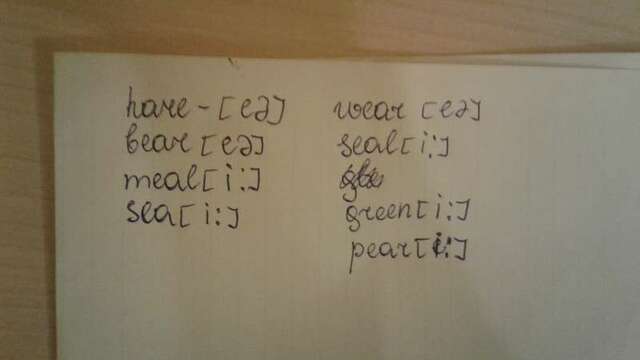 hare - [eə]
bear [eə]
meal [i:]
sea [i:]
wear [eə]
seal [i:]
green [i:]
pear [i:]